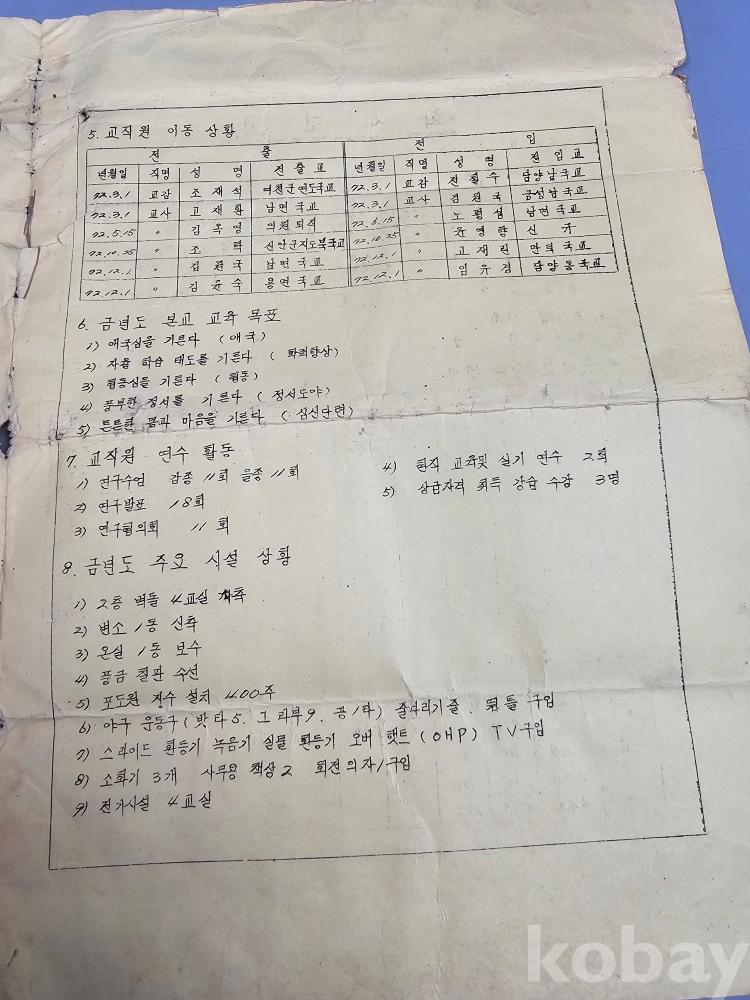 5. 교직원 이동 상황
전 출 전 입
년월일 직명 성 명 전출교 년월일 직명 성 명 전입교
72.3.1 교감 조재석 여천군연도국교 72.3.1 교감 전철수 담양남국교
72.3.1 교사 고재환 남면국교 72.3.1 교사 김원국 금성남국교
72.5.15 〃 김옥영 의원퇴직 72.6.15 〃 노평섭 남면국교
72.10.25 〃 조 신안군지도북국교 72.10.25 〃 윤영량 신 규
72.12.1 〃 김원국 남면국교 72.12.1 〃 고재린 만덕국교
72.12.1 〃 김윤수 용면국교 72.12.1 〃 임유경 담양동국교
6. 금년도 본교 교육 목표
1) 애국심을 기른다 (애국)
2) 자율 학습 태도를 기른다 ( 학력향상)
3) 협동심을 기른다 ( 협동)
4) 풍부한 정서를 기른다 (정서도야)
5) 튼튼한 몸과 마음을 기른다 (심신단련)
7. 교직원 연수 활동
1) 연구수업 갑종 11회 을종 11회
2) 연구발표 18회
3) 연구협의회 11 회
4) 현직 교육및 실기 연수 2회
5) 상급자격 취득 강습 수강 3명
8. 금년도 주요 시설 상황
1) 2층 벽돌 4교실
2) 변소 1동 신축
3) 온실 1동 보수
4) 풍금 칠판 수선
5) 포도원 지주 설치 400주
6) 야구 운동구(밧타5. 그라부9. 공1타) 줄사리기줄. 뜀틀 구입
7) 스라이드 환등기 녹음기 실물 환등기 오버 햇트(OHP) TV구입
8) 소화기 3개 사무용 책상2 회전의자1구입
9) 전기시설 4교실
kobay